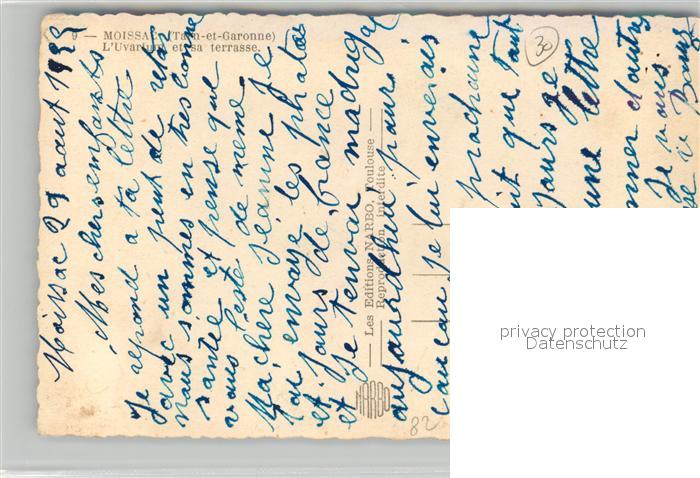 9 — MOISSAC (Tarn-et-Garonne)
L'Uvarium et sa terrasse.
30
Moissac 29 aout
Mes chers enfants
Je repond a ta lettre
avec un peut de retar
nous sommes en tres bonne
santee et pense que
vous l'este de meme
Ma chere jeanine je
tai envoye les photos
et jours de france
et je tenvoi madrigal
aujourdhui pours
je lui enverais
prochaine
it que tout
jours je
une lettre
nner dautres
je vais
Les Editions NARBO, Toulouse
Reproduction Interdite
NARBO
82
privacy protection
Datenschutz